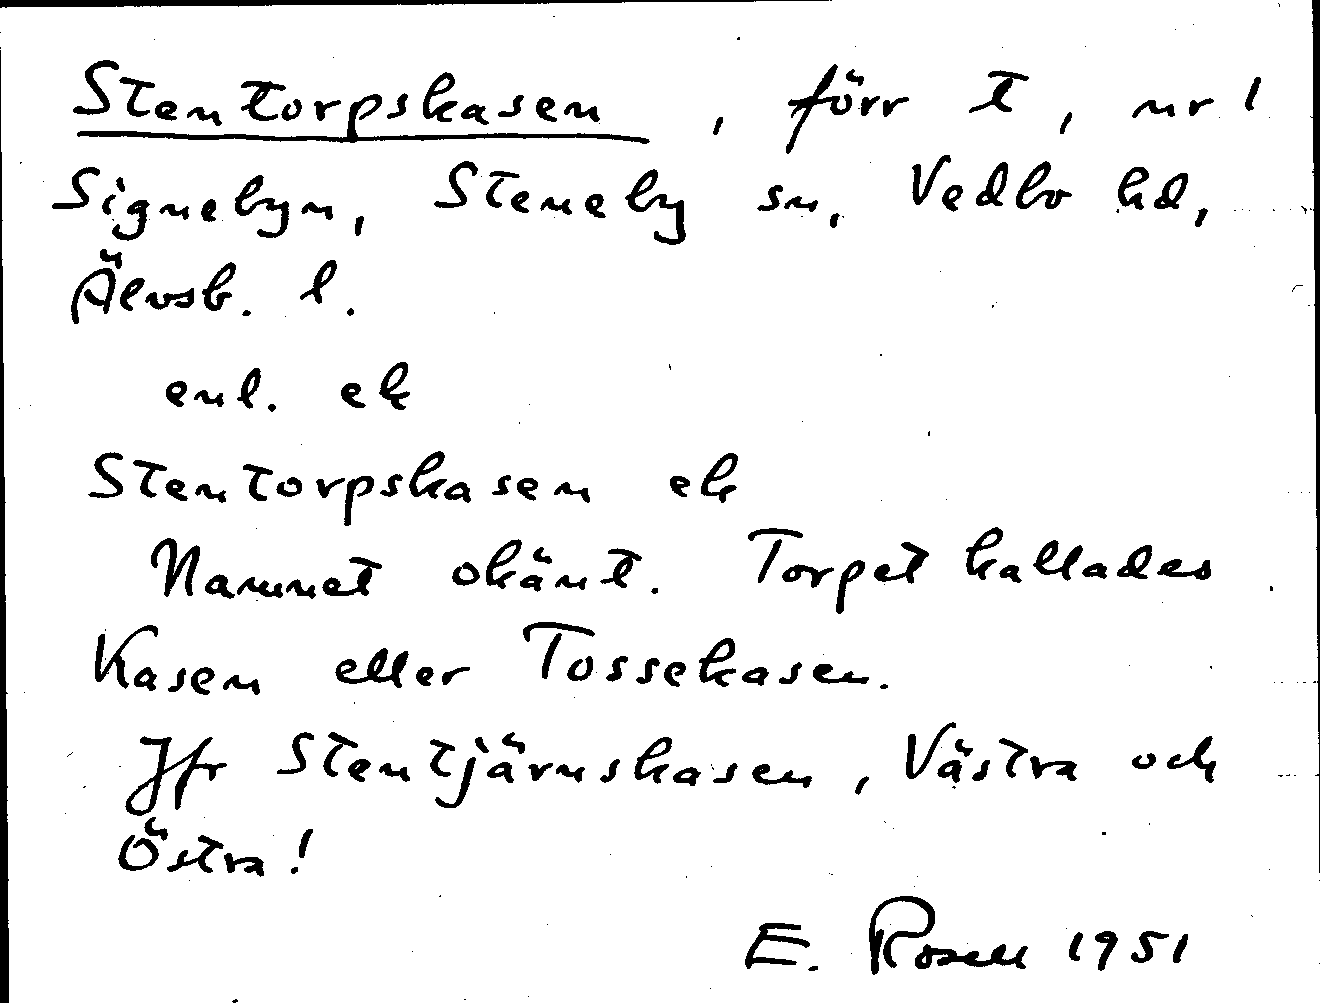 Stentorpskasen, förr t, nr 1
Signebyn, Steneby sn, Vedbo hd,
Älvsb. l.
enl. ek
Stentorpskasen ek
Namnet okänt. Torpet kallades
Kasen eller Tossekasen.
Jfr Stentjärnskasen, Västra och
Östra!
E. Rosell 1951